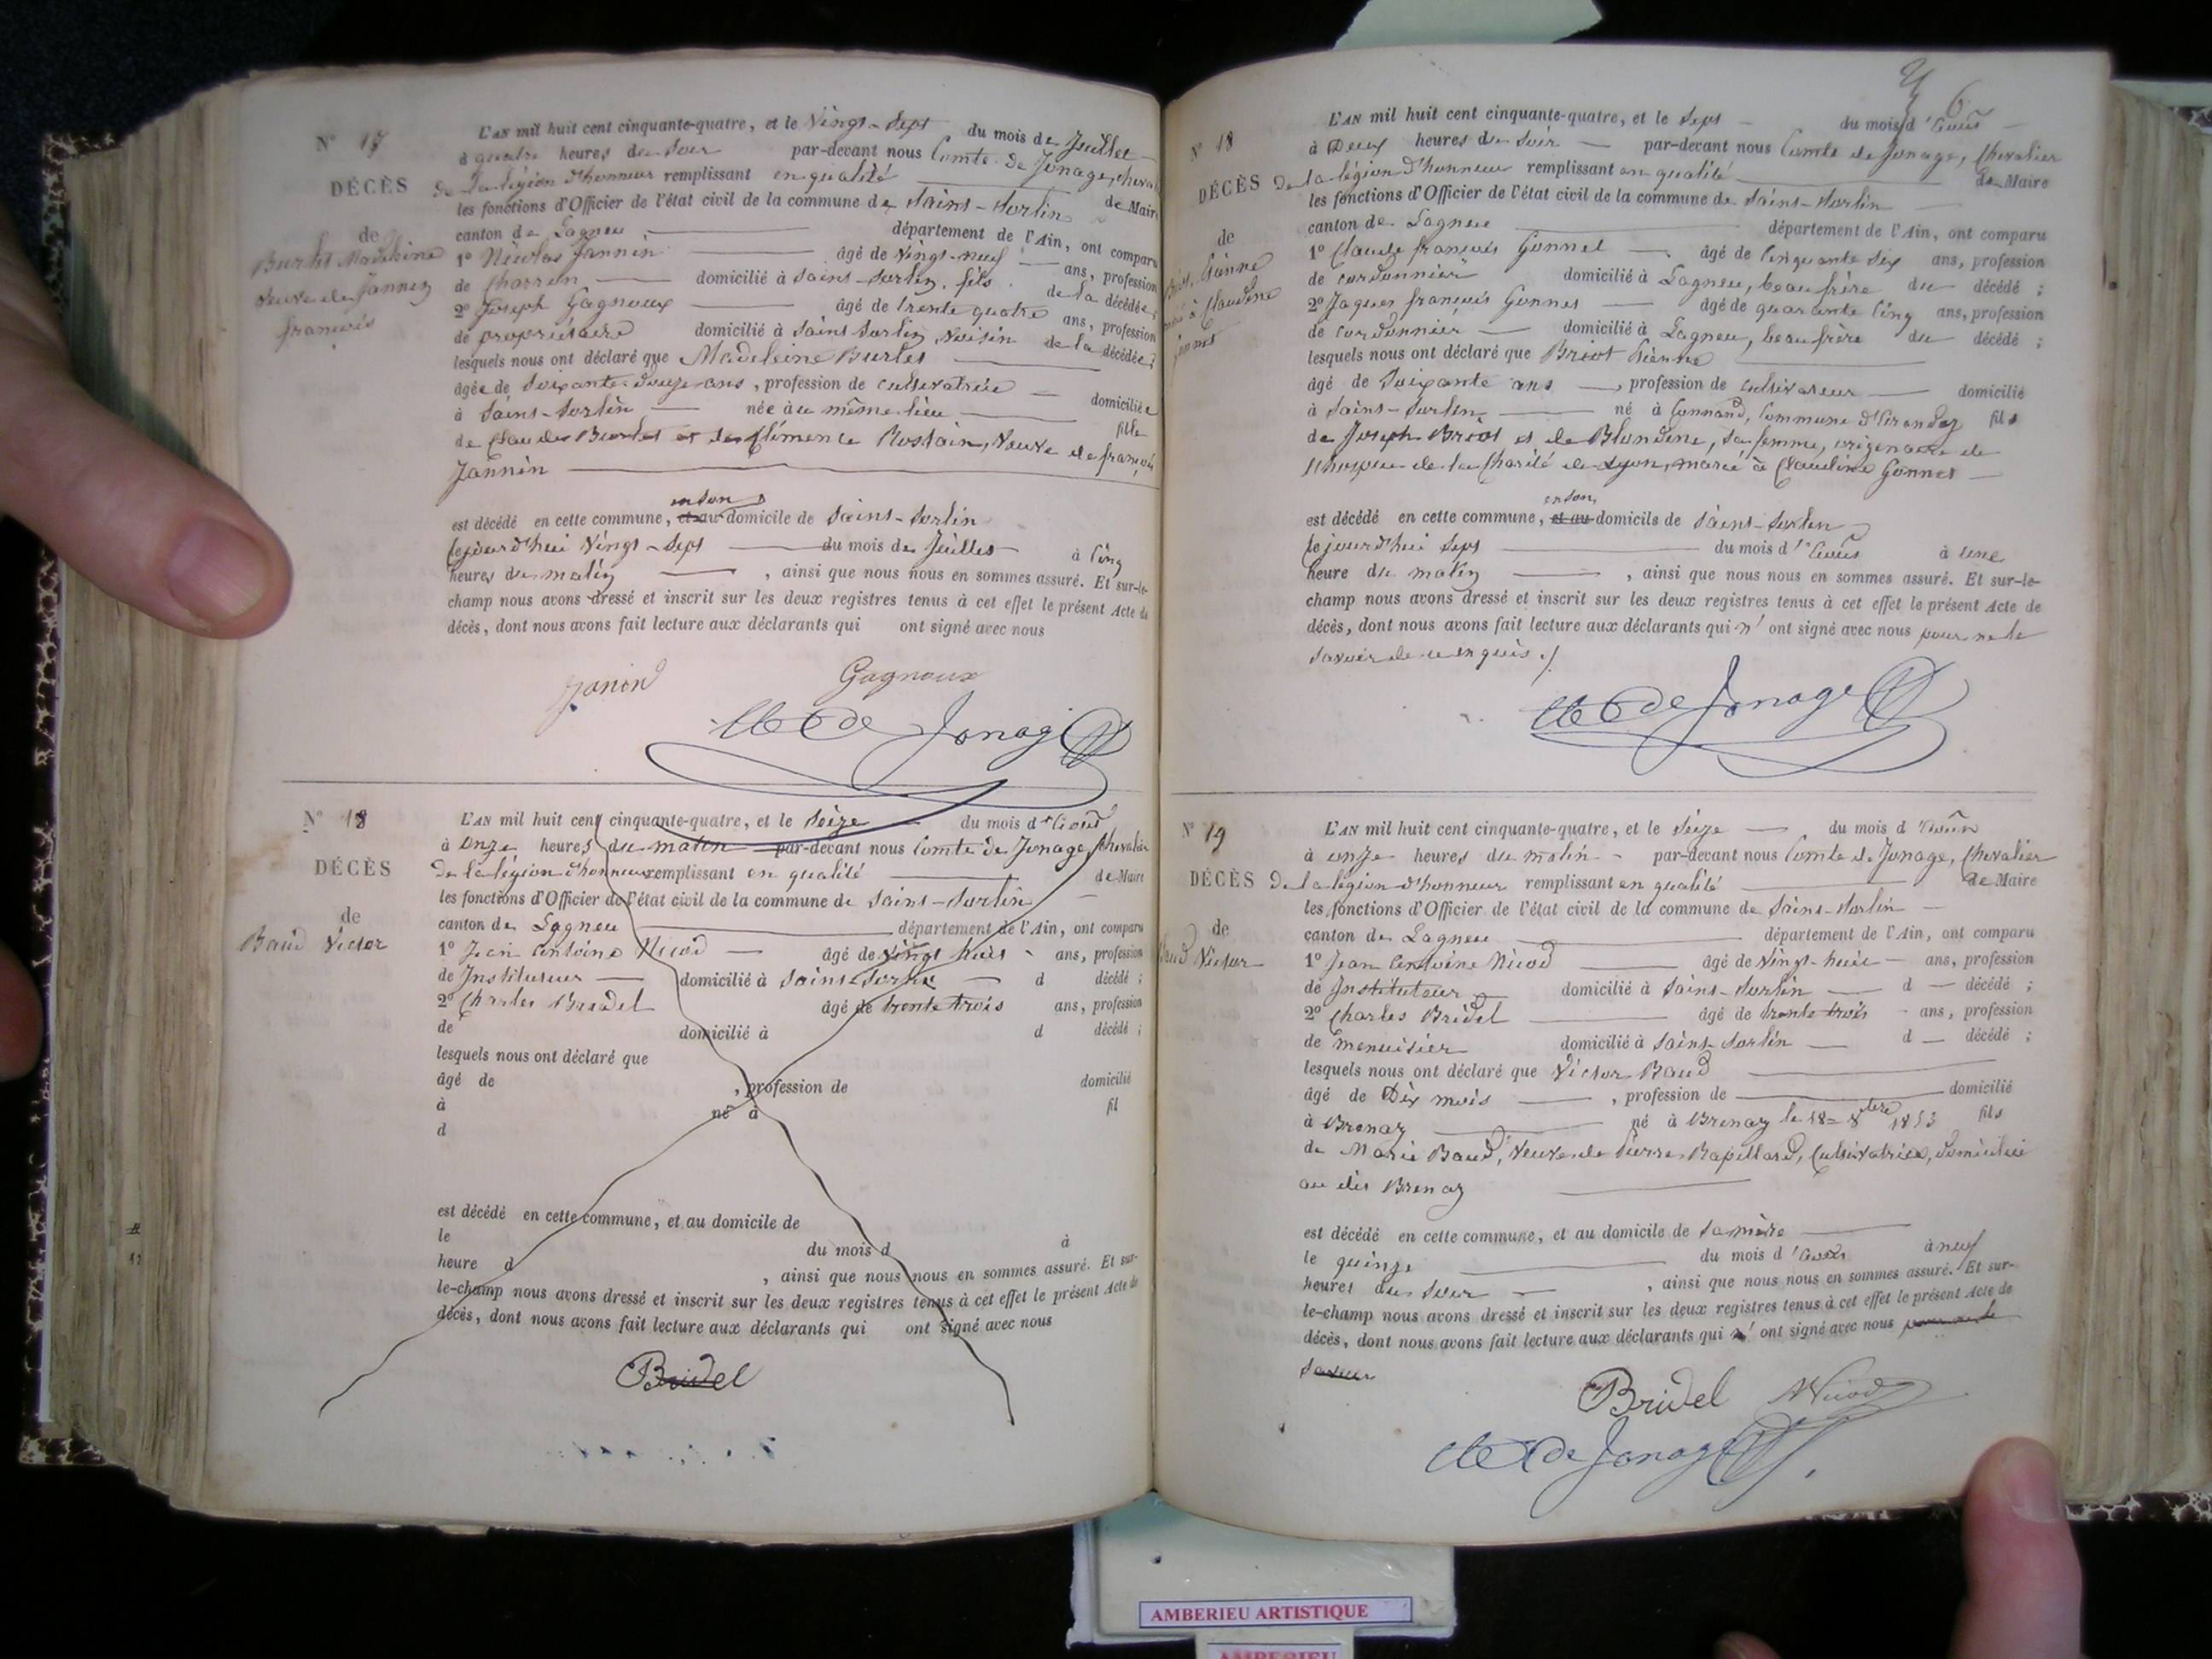 N° 17
DÉCÈS
de
Burlet Madeleine
veuve de Jannin
françois
L'AN mil huit cent cinquante-quatre, et le Vingt-Sept du mois de Juillet
à quatre heures du Soir par-devant nous Comte de Jonage, cheval
de la légion d'honneur remplissant en qualité de Maire
les fonctions d'Officier de l'état civil de la commune de Saint-Sorlin
canton de Lagneu département de l'Ain, ont comparu
1° Nicolas Jannin âgé de Vingt-neuf ans, profession
de Charron domicilié à Saint-Sorlin, fils de la décédée;
2° Joseph Gagnoux âgé de trente quatre ans, profession
de propriétaire domicilié à Saint Sorlin, Voisin de la décédée;
lesquels nous ont déclaré que Madeleine Burlet
âgée de Soixante-douze ans, profession de cultivatrice domiciliée
à Saint-Sorlin née au même lieu fille
de Claude Burlet et de Clémence Rostain, Veuve de françois
Jannin
en son
est décédé en cette commune, et au domicile de Saint-Sorlin
Cejourd'hui Vingt-Sept du mois de Juillet à Cinq
heures du matin, ainsi que nous nous en sommes assuré. Et sur-le-
champ nous avons dressé et inscrit sur les deux registres tenus à cet effet le présent Acte de
décès, dont nous avons fait lecture aux déclarants qui ont signé avec nous
Janin Gagnoux
Cte de Jonage
N° 18
DÉCÈS
de
Baud Victor
L'AN mil huit cent cinquante-quatre, et le Seize du mois d'Août
à Onze heures du matin par-devant nous Comte de Jonage, Chevalier
de la légion d'honneur remplissant en qualité de Maire
les fonctions d'Officier de l'état civil de la commune de Saint-Sorlin
canton de Lagneu département de l'Ain, ont comparu
1° Jean Antoine Nicod âgé de Vingt huit ans, profession
de Instituteur domicilié à Saint-Sorlin d décédé;
2° Charles Bridel âgé de trente trois ans, profession
de domicilié à d décédé;
lesquels nous ont déclaré que
âgé de , profession de domicilié
à né à fil
d
est décédé en cette commune, et au domicile de
le du mois d à
heure d , ainsi que nous nous en sommes assuré. Et sur-
le-champ nous avons dressé et inscrit sur les deux registres tenus à cet effet le présent Acte de
décès, dont nous avons fait lecture aux déclarants qui ont signé avec nous
Bridel
6
N° 18
DÉCÈS
de
Briot Etienne
à Claudine
Gonnet
L'AN mil huit cent cinquante-quatre, et le Sept du mois d'Août
à Deux heures du Soir par-devant nous Comte de Jonage, Chevalier
de la légion d'honneur remplissant en qualité de Maire
les fonctions d'Officier de l'état civil de la commune de Saint-Sorlin
canton de Lagneu département de l'Ain, ont comparu
1° Claude françois Gonnet âgé de Cinquante Six ans, profession
de cordonnier domicilié à Lagneu, beau frère du décédé;
2° Jaques françois Gonnet âgé de quarante Cinq ans, profession
de cordonnier domicilié à Lagneu, beau frère du décédé;
lesquels nous ont déclaré que Briot Etienne
âgé de Soixante ans, profession de cultivateur domicilié
à Saint-Sorlin né à Connand, Commune d'Arandaz fils
de Joseph Briot et de Blondine, sa femme, originaire de
l'hospice de la Charité de Lyon, marié à Claudine Gonnet
en son
est décédé en cette commune, et au domicile de Saint-Sorlin
Cejourd'hui Sept du mois d'Août à une
heure du matin, ainsi que nous nous en sommes assuré. Et sur-le-
champ nous avons dressé et inscrit sur les deux registres tenus à cet effet le présent Acte de
décès, dont nous avons fait lecture aux déclarants qui n'ont signé avec nous pour ne le
savoir de ce enquis ./
Cte de Jonage
N° 19
DÉCÈS
de
Baud Victor
L'AN mil huit cent cinquante-quatre, et le Seize du mois d'Août
à onze heures du matin par-devant nous Comte de Jonage, Chevalier
de la légion d'honneur remplissant en qualité de Maire
les fonctions d'Officier de l'état civil de la commune de Saint-Sorlin
canton de Lagneu département de l'Ain, ont comparu
1° Jean Antoine Nicod âgé de Vingt-huit ans, profession
de Instituteur domicilié à Saint-Sorlin d décédé;
2° Charles Bridel âgé de trente trois ans, profession
de menuisier domicilié à Saint-Sorlin d décédé;
lesquels nous ont déclaré que Victor Baud
âgé de Dix mois, profession de domicilié
à Brenaz né à Brenaz le 18 8bre 1853 fils
de Marie Baud, Veuve de Pierre Rapillard, Cultivatrice, domiciliée
au dit Brenaz
est décédé en cette commune, et au domicile de Sa mère
le quinze du mois d'Août à neuf
heures du Soir, ainsi que nous nous en sommes assuré. Et sur-
le-champ nous avons dressé et inscrit sur les deux registres tenus à cet effet le présent Acte de
décès, dont nous avons fait lecture aux déclarants qui n'ont signé avec nous pour ne le
Savoir
Bridel Nicod
Cte de Jonage
AMBERIEU ARTISTIQUE
AMBERIEU